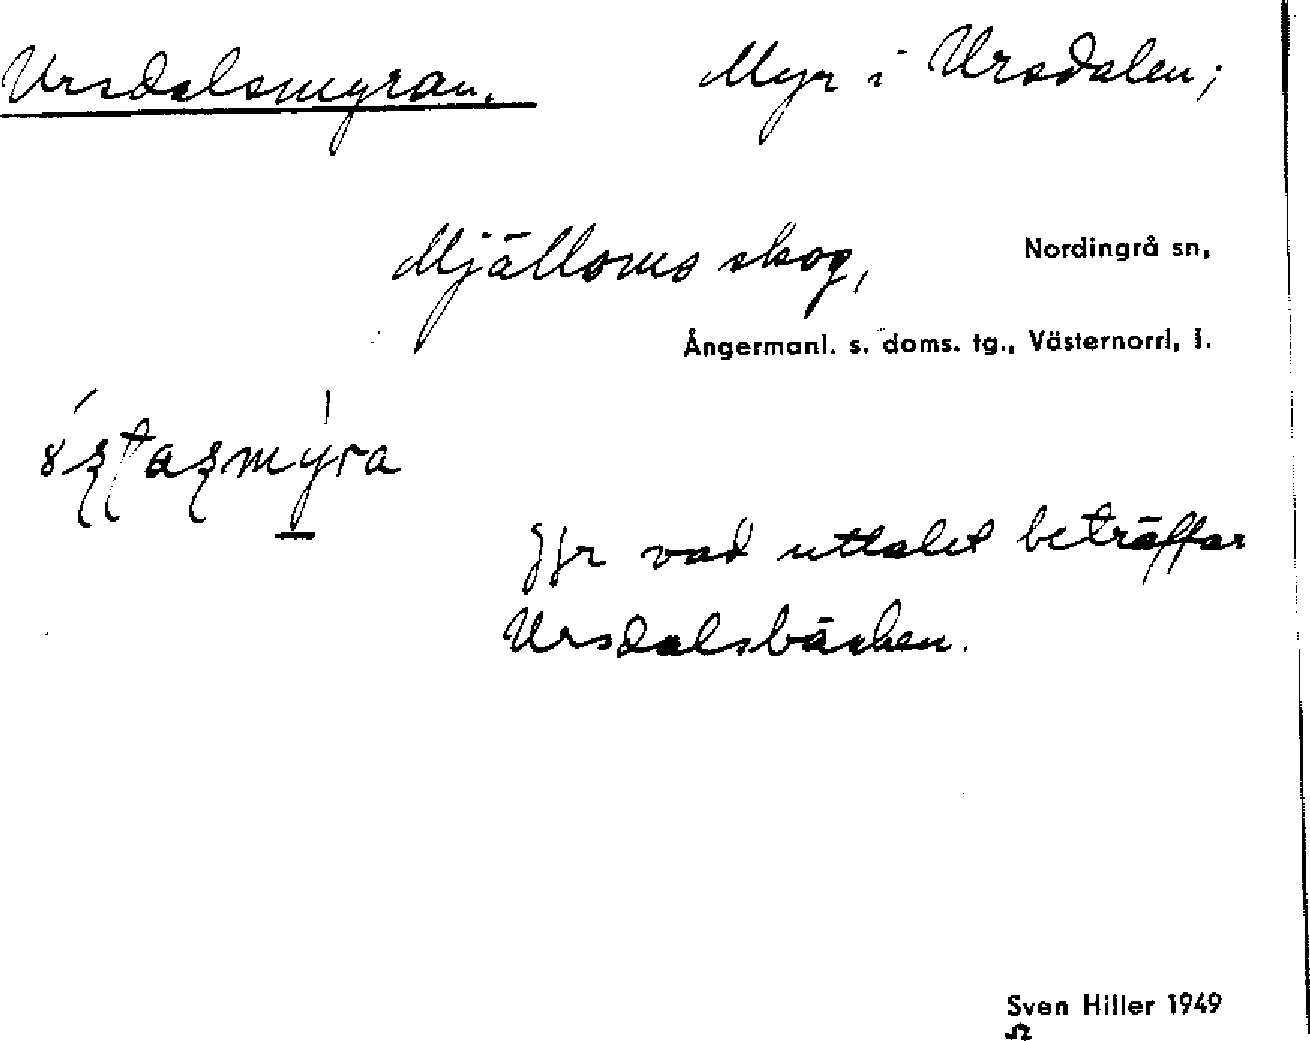 Ursdalsmyran. Myr i Ursdalen;
Mjälloms skog, Nordingrå sn,
Ångermanl. s. doms. tg., Västernorrl, l.
Jfr vad uttalet beträffar
Ursdalsbäcken.
Sven Hiller 1949